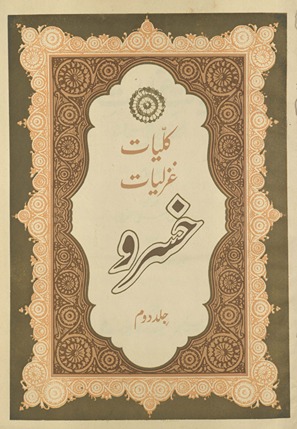 کلّیات
غزلیات
خسرو
جلد دوم